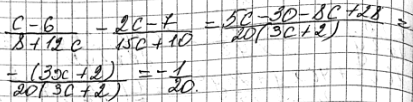 (c-6)/(8+12c) - (2c-7)/(15c+10) = (5c-30-8c+28)/(20(3c+2)) =
-(3c+2)/(20(3c+2)) = -1/20.